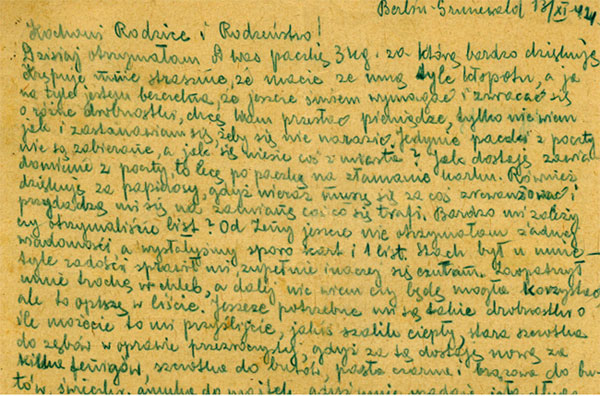 Berlin-Grunewald 13/XI 42r.
Kochani Rodzice i Rodzeństwo!
Dzisiaj otrzymałam A was paczkę 3 kg. za którą bardzo dziękuję
Krępuje mnie strasznie, że macie ze mną tyle kłopotu, a ja
na tyle jestem bezczelna, że jeszcze śmiem wymagać i zwracać się
o różne drobnostki, chcę Wam przesłać pieniądze, tylko nie wiem
jak i zastanawiam się, żeby się nie narazić. Jedynie paczki z poczty
nie są zabierane, a jak się niesie coś z miasta? Jak dostaję zawia
domienie z poczty, to lecę po paczkę na złamanie karku. Również
dziękuję za papierosy, gdyż nieraz muszę się za coś zrewanżować i
przydadzą mi się na zamianę coś co się trafi. Bardzo mi zależy
czy otrzymaliście list? Od Żeni jeszcze nie otrzymałam żadnej
wiadomości a wysłałyśmy sporo kart i 1 list. Stach był u mnie –
tyle radości sprawił mi, zupełnie inaczej się czułam. Zaopatrzył
mnie trochę w chleb, a dalej nie wiem czy będę mogła korzystać
ale to opiszę w liście. Jeszcze potrzebne mi są takie drobnostki o
ile możecie to mi przyślijcie, jakiś szalik ciepły, stara szczotka
do zębów w oprawie przezroczystej, gdyż za tą dostaję nową za
kilka fenigów, szczotka do butów, pasta czarna i brązowa do bu-
tów, świeczki,